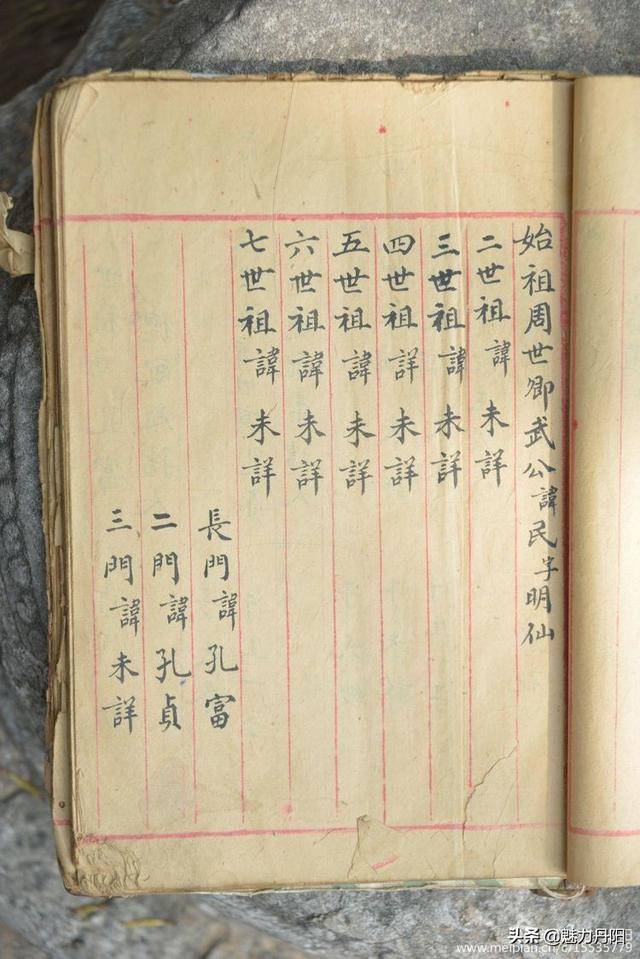 始祖周世卿武公諱民字明仙
二世祖諱未詳
三世祖諱未詳
四世祖詳未詳
五世祖諱未詳
六世祖諱未詳
七世祖諱未詳
長門諱孔富
二門諱孔貞
三門諱未詳
头条 @魅力丹阳
www.meipian.cn/c/15535779